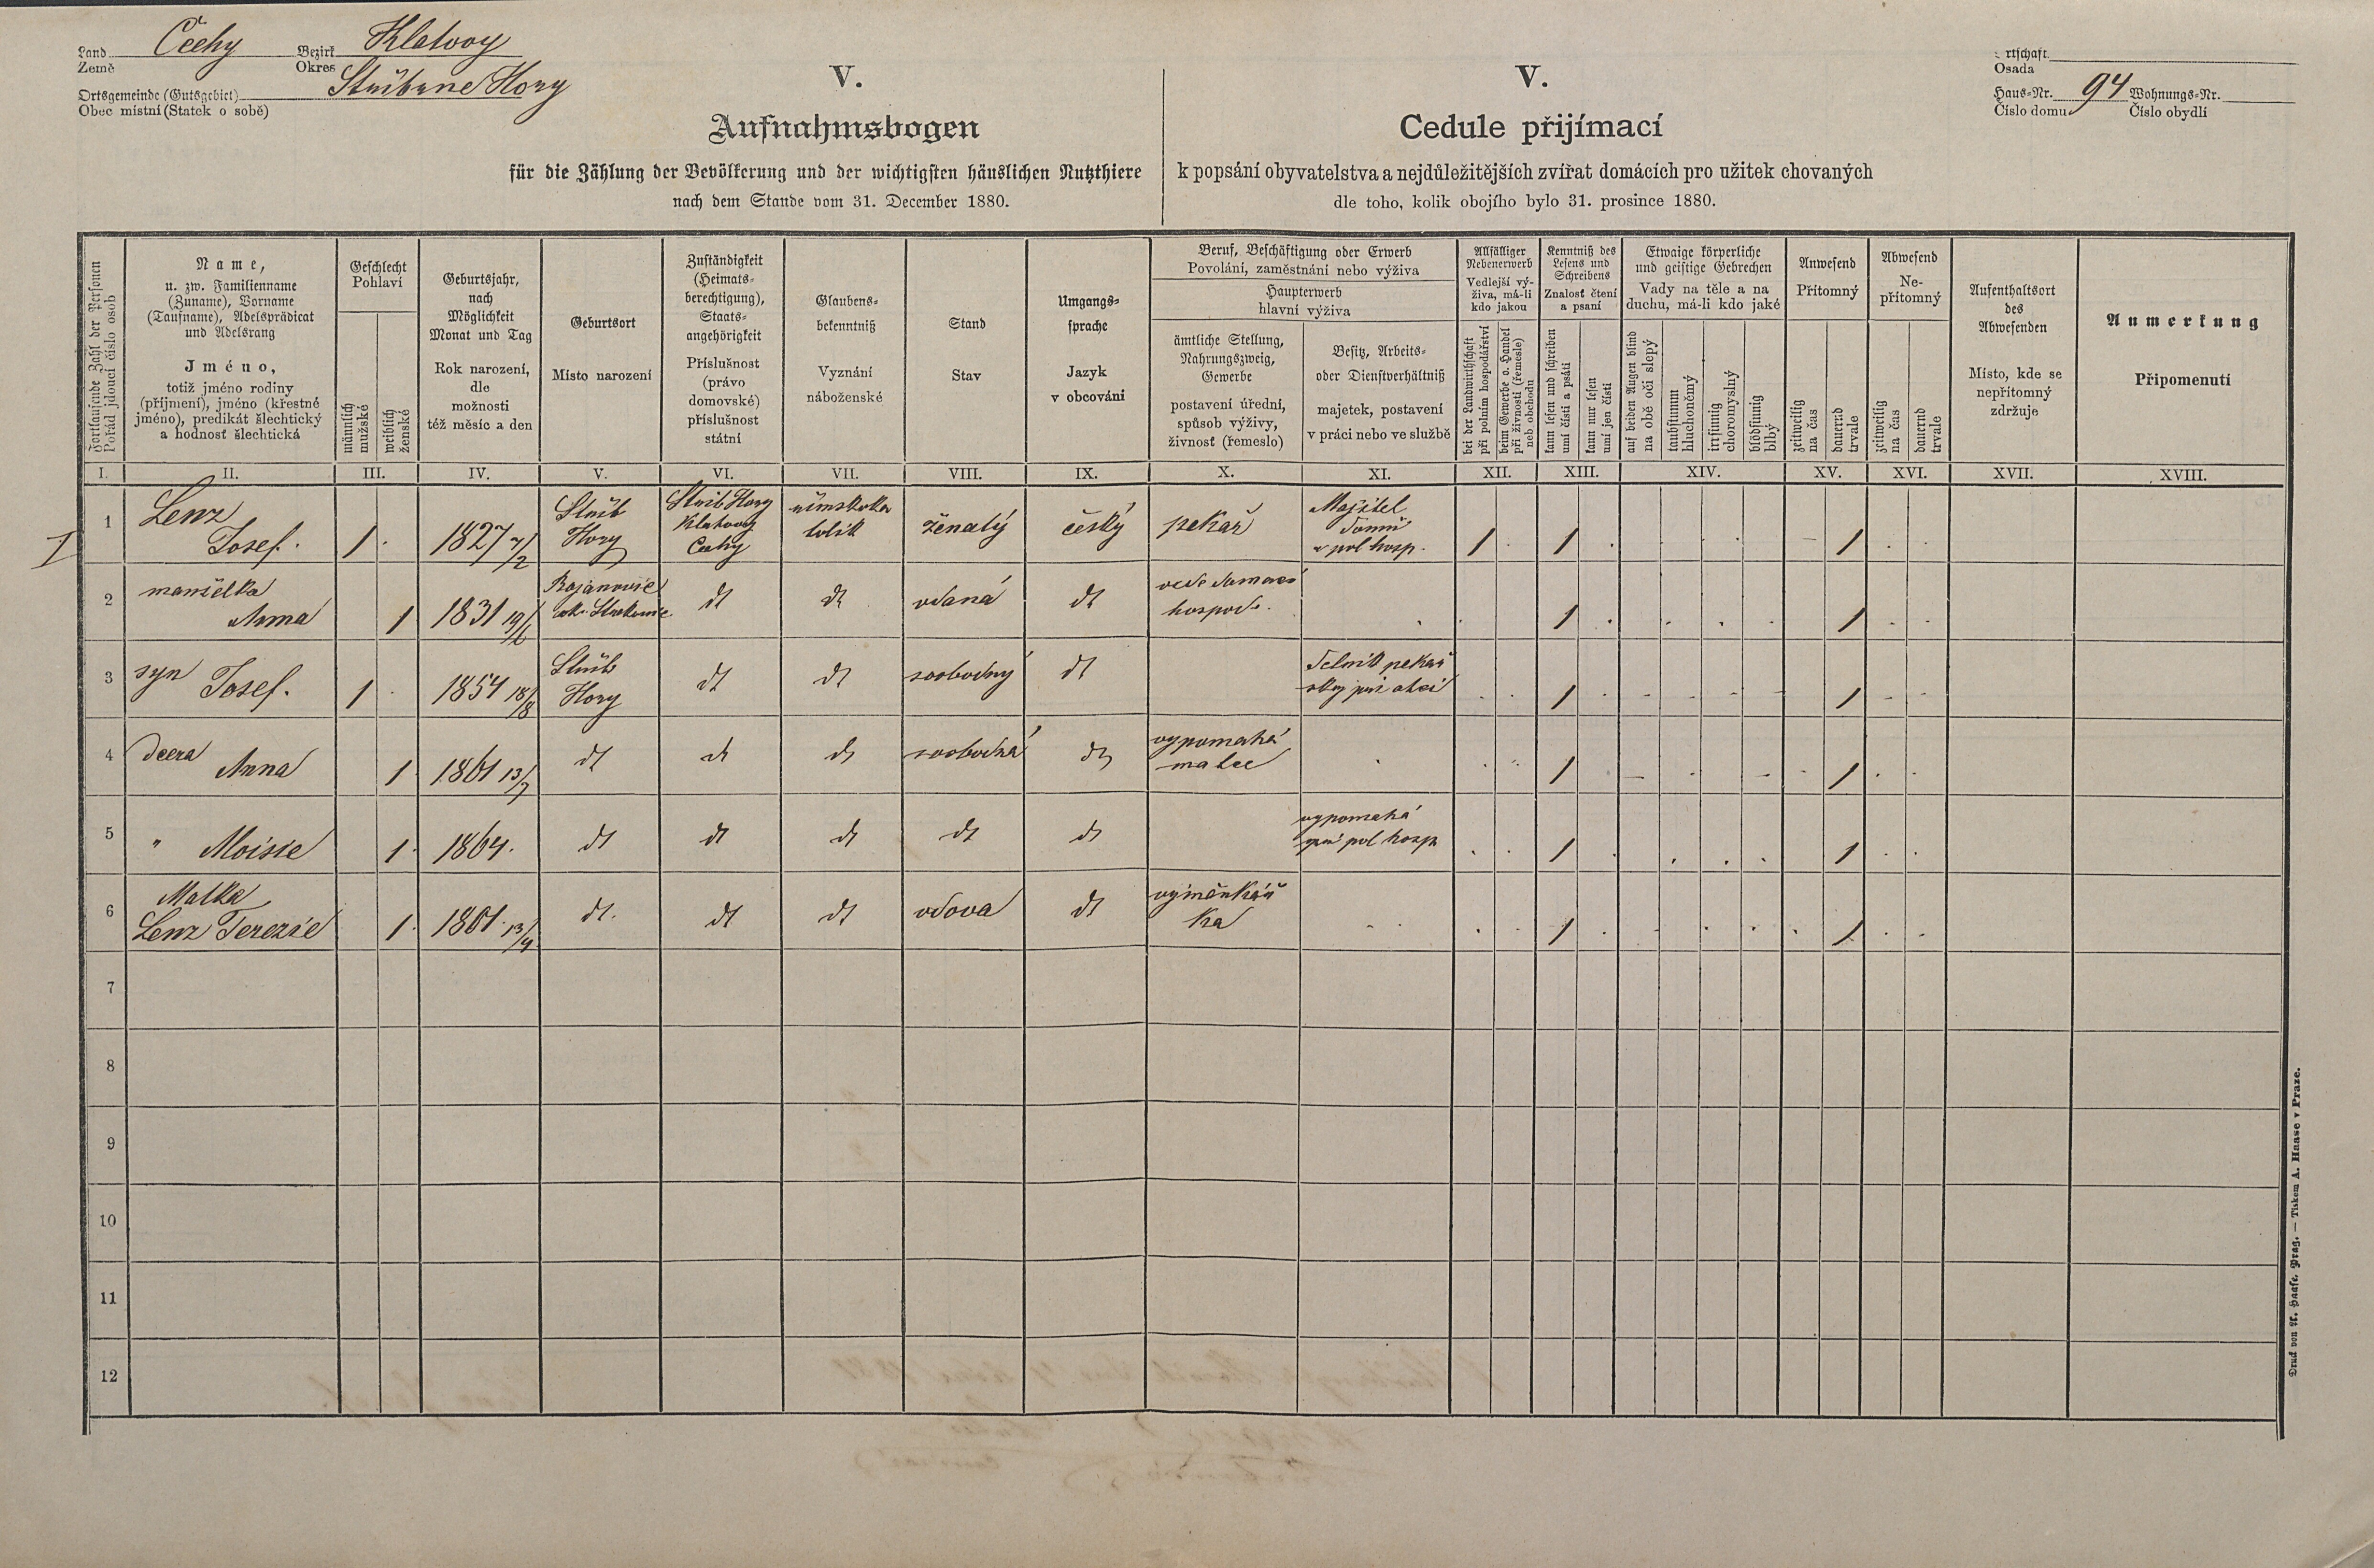 Land Čechy Bezirk Klatovy
Země Okres
Ortsgemeinde (Gutsgebiet) Stříbrné Hory
Obec místní (Statek o sobě)
Ortschaft
Osada
Haus-Nr. 94 Wohnungs-Nr.
Číslo domu Číslo obydlí
V.
Aufnahmsbogen
für die Zählung der Bevölkerung und der wichtigsten häuslichen Nutzthiere
nach dem Stande vom 31. December 1880.
V.
Cedule přijímací
k popsání obyvatelstva a nejdůležitějších zvířat domácích pro užitek chovaných
dle toho, kolik obojího bylo 31. prosince 1880.
Fortlaufende Zahl der Personen
Pořád jdoucí číslo osob
Name,
u. zw. Familienname
(Zuname), Vorname
(Taufname), Adelsprädicat
und Adelsrang
Jméno,
totiž jméno rodiny
(příjmení), jméno (křestné
jméno), predikát šlechtický
a hodnosť šlechtická
Geschlecht
Pohlaví
männlich
mužské
weiblich
ženské
Geburtsjahr,
nach
Möglichkeit
Monat und Tag
Rok narození,
dle
možnosti
též měsíc a den
Geburtsort
Místo narození
Zuständigkeit
(Heimats-
berechtigung),
Staats-
angehörigkeit
Příslušnost
(právo
domovské)
příslušnost
státní
Glaubens-
bekenntniß
Vyznání
náboženské
Stand
Stav
Umgangs-
sprache
Jazyk
v obcování
Beruf, Beschäftigung oder Erwerb
Povolání, zaměstnání nebo výživa
Haupterwerb
hlavní výživa
ämtliche Stellung,
Nahrungszweig,
Gewerbe
postavení úřední,
spůsob výživy,
živnosť (řemeslo)
Besitz, Arbeits-
oder Dienstverhältniß
majetek, postavení
v práci nebo ve službě
Allfälliger
Nebenerwerb
Vedlejší vý-
živa, má-li
kdo jakou
bei der Landwirthschaft
při polním hospodářství
beim Gewerbe o. Handel
při živnosti (řemesle)
neb obchodu
Kenntniß des
Lesens und
Schreibens
Znalosť čtení
a psaní
kann lesen und schreiben
umí čísti a psáti
kann nur lesen
umí jen čísti
Etwaige körperliche
und geistige Gebrechen
Vady na těle a na
duchu, má-li kdo jaké
auf beiden Augen blind
na obě oči slepý
taubstumm
hluchoněmý
irrsinnig
choromyslný
blödsinnig
blbý
Anwesend
Přítomný
zeitweilig
na čas
dauernd
trvale
Abwesend
Ne-
přítomný
zeitweilig
na čas
dauernd
trvale
Aufenthaltsort
des
Abwesenden
Místo, kde se
nepřítomný
zdržuje
Anmerkung
Připomenutí
I. II. III. IV. V. VI. VII. VIII. IX. X. XI. XII. XIII. XIV. XV. XVI. XVII. XVIII.
I
1 Lenz
Josef. 1 1827 7/2
Stříb
Hory
Stříb Hory
Klatovy
Čechy
římskoka
tolík
ženatý český pekař
Majitel
domu
a pol hosp.
1 1 1
2 manželka
Anna 1 1831 19/6
dt dt vdaná dt
vede domácí
hospod.
1 1
3 syn Josef. 1 1854 18/8
Stříb
Hory
dt dt svobodný dt
1 1
4 dcera Anna 1 1861 13/7 dt dt dt svobodná dt
vypomáhá
matce
1 1
5 " Aloisie 1 1864. dt dt dt dt dt
vypomáhá
při pol hosp
1 1
6 Matka
Lenz Terezie 1 1801 13/4 dt. dt dt vdova dt
výměnkář
ka
1 1
7
8
9
10
11
12
Druck von A. Haase, Prag. — Tiskem A. Haase v Praze.